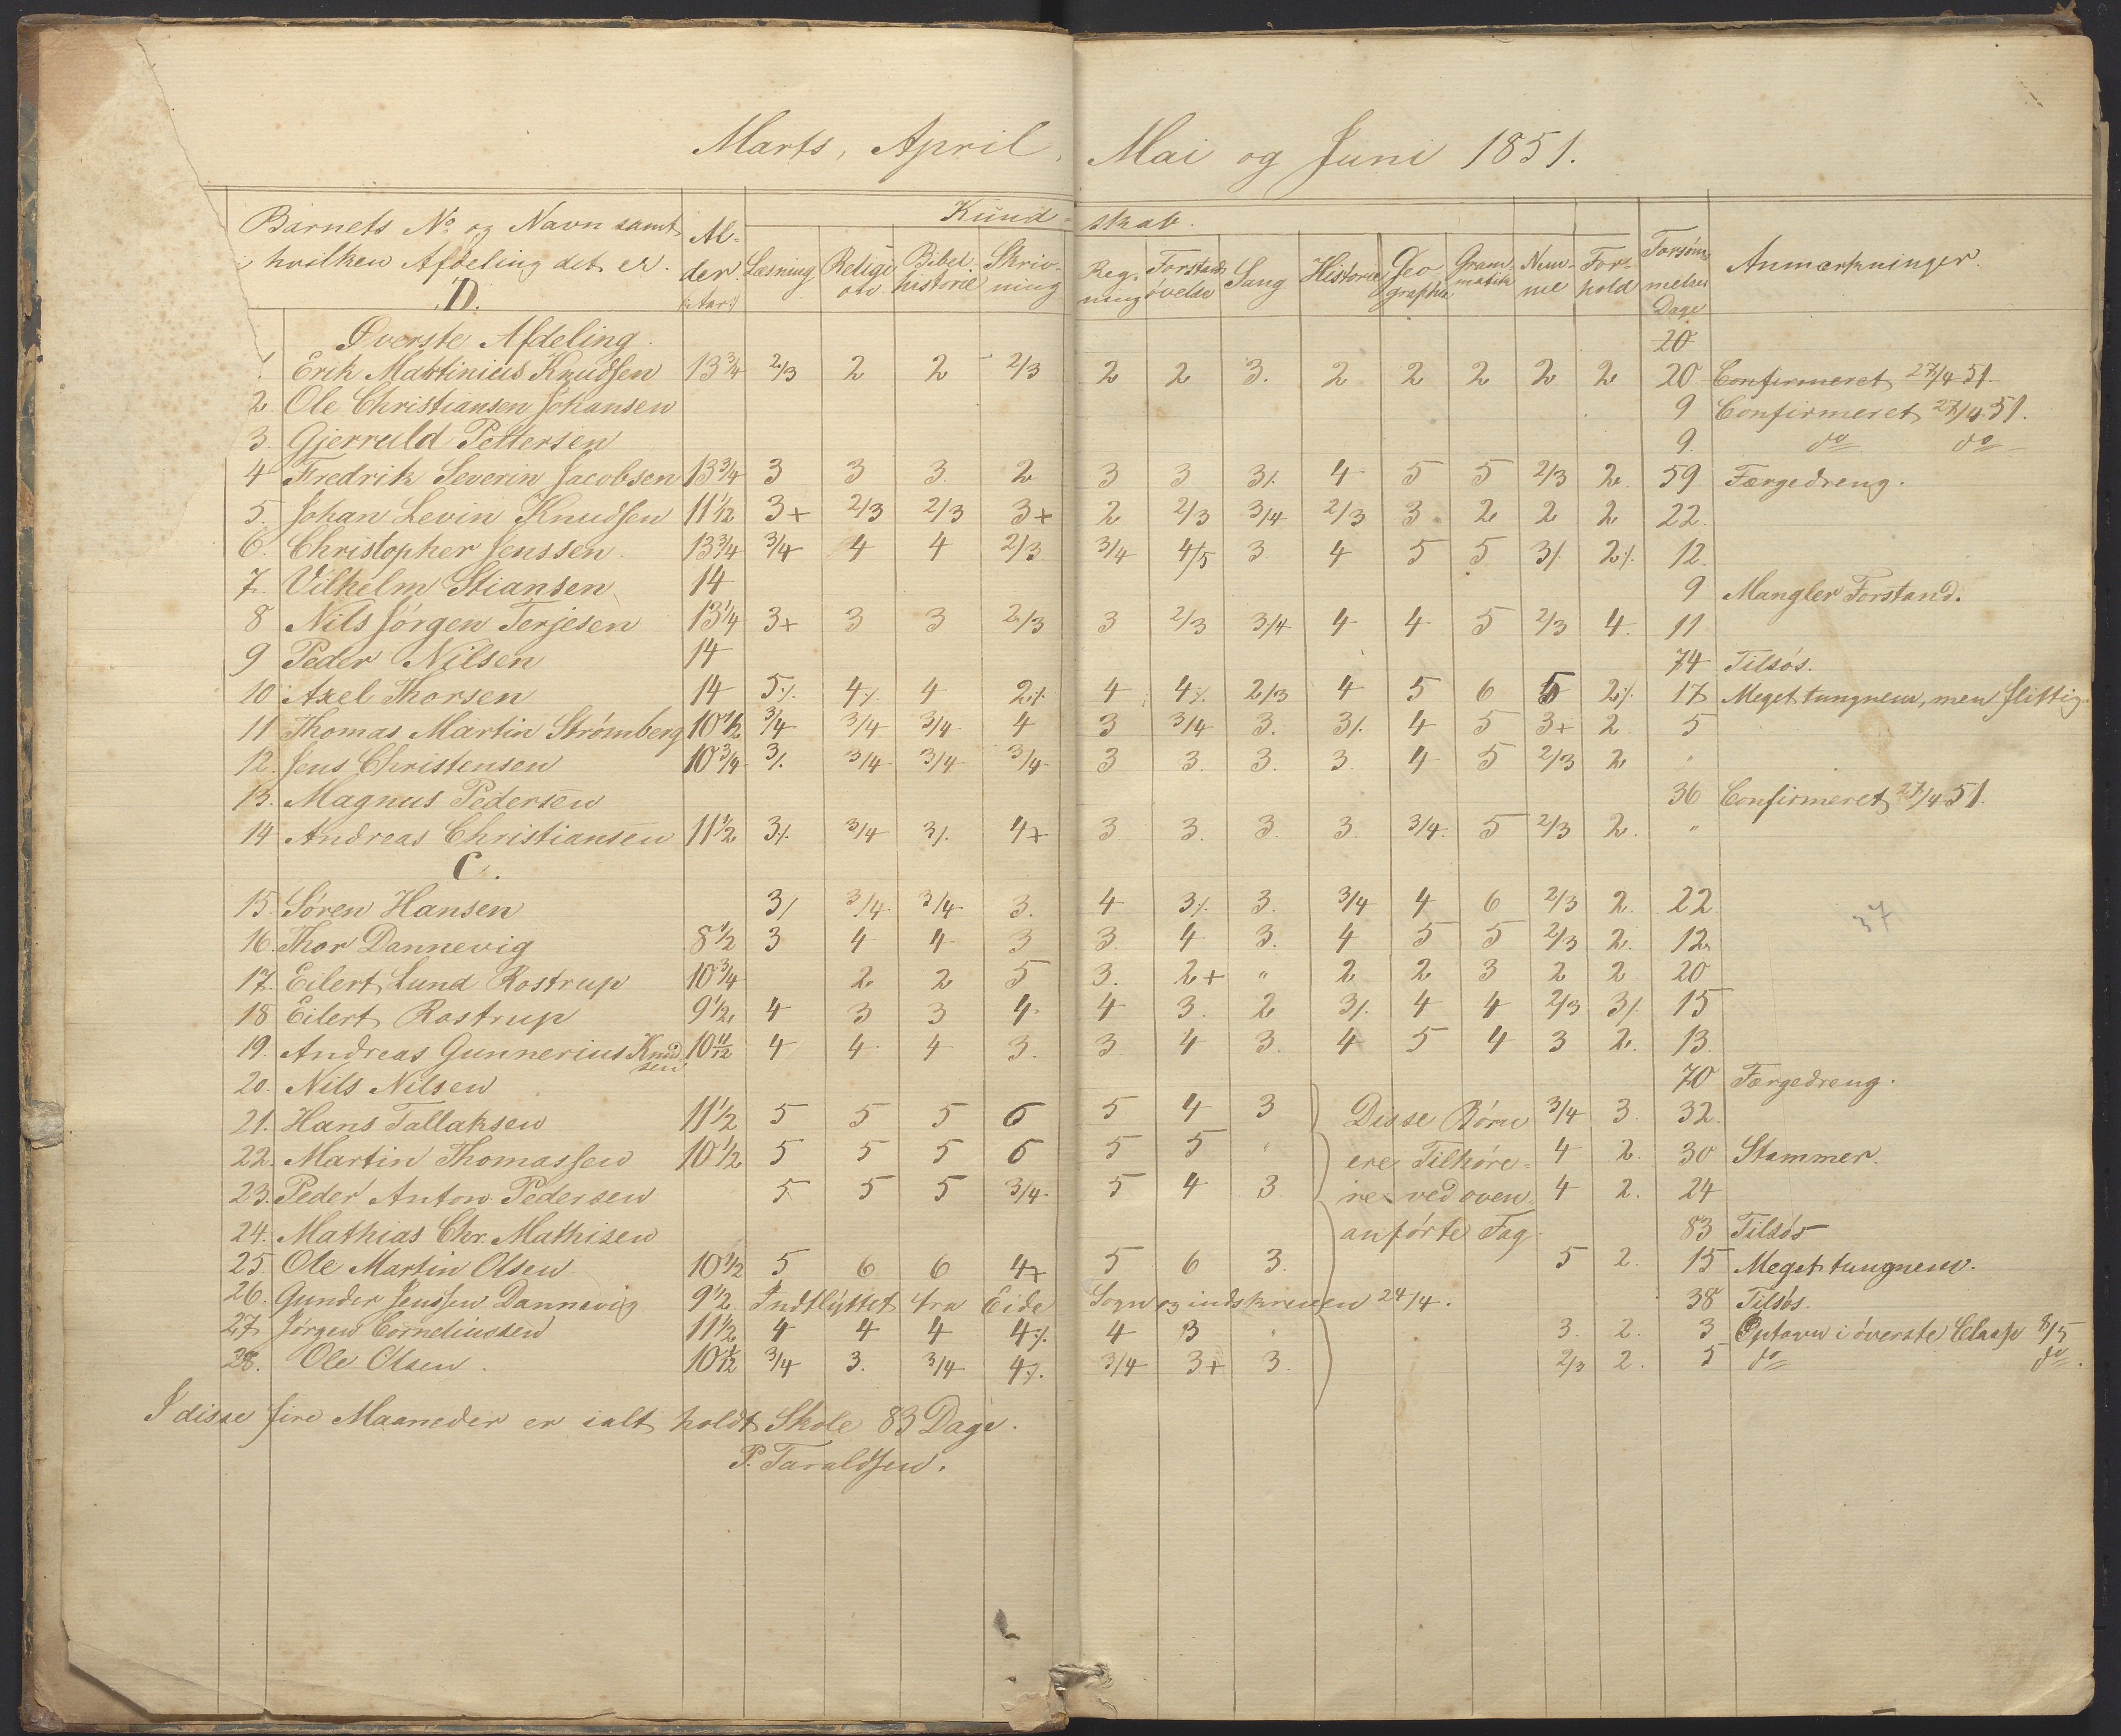 Marts, April, Mai og Juni 1851.
Barnets No og Navn samt hvilken Afdeling det er. D. | Alder (: Aar:) | Kundskab. | Læsning | Religion | Bibelhistorie | Skrivning | Regning | Forstandsøvelse | Sang | Historie | Geographie | Grammatik | Nemme | Forhold | Forsømmelses Dage | Anmærkninger.
Øverste Afdeling. 20
1. Erik Martinius Knudsen 13 3/4 2/3 2 2 2/3 2 2 3. 2 2 2 2 2 20 Confirmeret 27/4 51.
2. Ole Christiansen Johansen 9 Confirmeret 27/4 51.
3. Gjerruld Pettersen 9. do do
4 Fredrik Severin Jacobsen 13 3/4 3 3 3. 2 3 3 3⁒ 4 5 5 2/3 2. 59 Færgedreng.
5. Johan Levin Knudsen 11 1/12 3+ 2/3 2/3 3+ 2 2/3 3/4 2/3 3. 2 2 2 22.
6. Christopher Jenssen. 13 3/4 3/4 4 4 2/3 3/4 4/5 3. 4 5 5 3⁒ 2⁒ 12.
7. Vilhelm Stiansen 14 9 Mangler Forstand.
8 Nils Jörgen Terjesen 13 1/4 3+ 3 3 2/3 3 2/3 3/4 4 4 5 2/3 4. 11
9 Peder Nilsen 14 74 Tilsøs.
10 Axel Thorsen 14 5⁒ 4⁒ 4 2⁒ 4 4⁒ 2/3 4 5 6 5 2⁒ 17 Meget tungnem, men flittig.
11 Thomas Martin Strømberg 10 1/2 3/4 3/4 3/4 4 3 3/4 3. 3⁒ 4 5 3+ 2 5
12. Jens Christensen 10 3/4 3⁒ 3/4 3/4 3/4 3 3. 3. 3 4 5 2/3 2 "
13. Magnus Pedersen 36 Confirmeret 27/4 51.
14 Andreas Christiansen 11 1/2 3⁒ 3/4 3⁒ 4+ 3 3. 3. 3. 3/4 5 2/3 2. "
C.
15. Søren Hansen 3⁒ 3/4 3/4 3. 4 3⁒ 3. 3/4 4 6 2/3 2. 22. 37
16. Thor Dannevig 8 1/2 3 4 4 3 3. 4 3. 4 5 5 2/3 2. 12
17. Eilert Lund Rostrup 10 3/4 2 2 5 3. 2+ " 2 2 3 2 2 20
18 Eilert Rostrup 9 1/2 4 3 3 4. 4 3. 2 3⁒ 4 4 2/3 3⁒ 15
19. Andreas Gunnerius Knudsen 10 11/12 4 4 4 3. 3 4 3. 4 5 4 3 2. 13.
20. Nils Nilsen 70 Færgedreng.
21. Hans Tallaksen 11 1/2 5 5 5 6 5 4 3 Disse Börn 3/4 3. 32.
22. Martin Thomassen 10 1/2 5 5 5 6 5 5 " ere Tilhöre- 4 2. 30 Stammer.
23. Peder Anton Pedersen 5 5 5 3/4 5 4 3 re ved oven- 4 2. 24
24. Mathias Chr. Mathisen anförte Fag. 83 Tilsös
25 Ole Martin Olsen 10 1/2 5 6 6 4+ 5 6 3. 5 2. 15 Meget tungnem.
26. Gunder Jenssen Dannevig 9 1/2 Indflyttet fra Eide Sogn og indskreven 24/4. 38 Tilsös.
27 Jörgen Corneliussen 11 1/2 4 4 4 4⁒ 4 3 " 3. 2. 3 Optaven i överste Classe 8/5
28. Ole Olsen. 10 1/12 3/4 3. 3/4 4⁒ 3/4 3+ 3. 2/3 2. 5 do do.
I disse fire Maaneder er ialt holdt Skole 83 Dage.
P. Taraldsen.